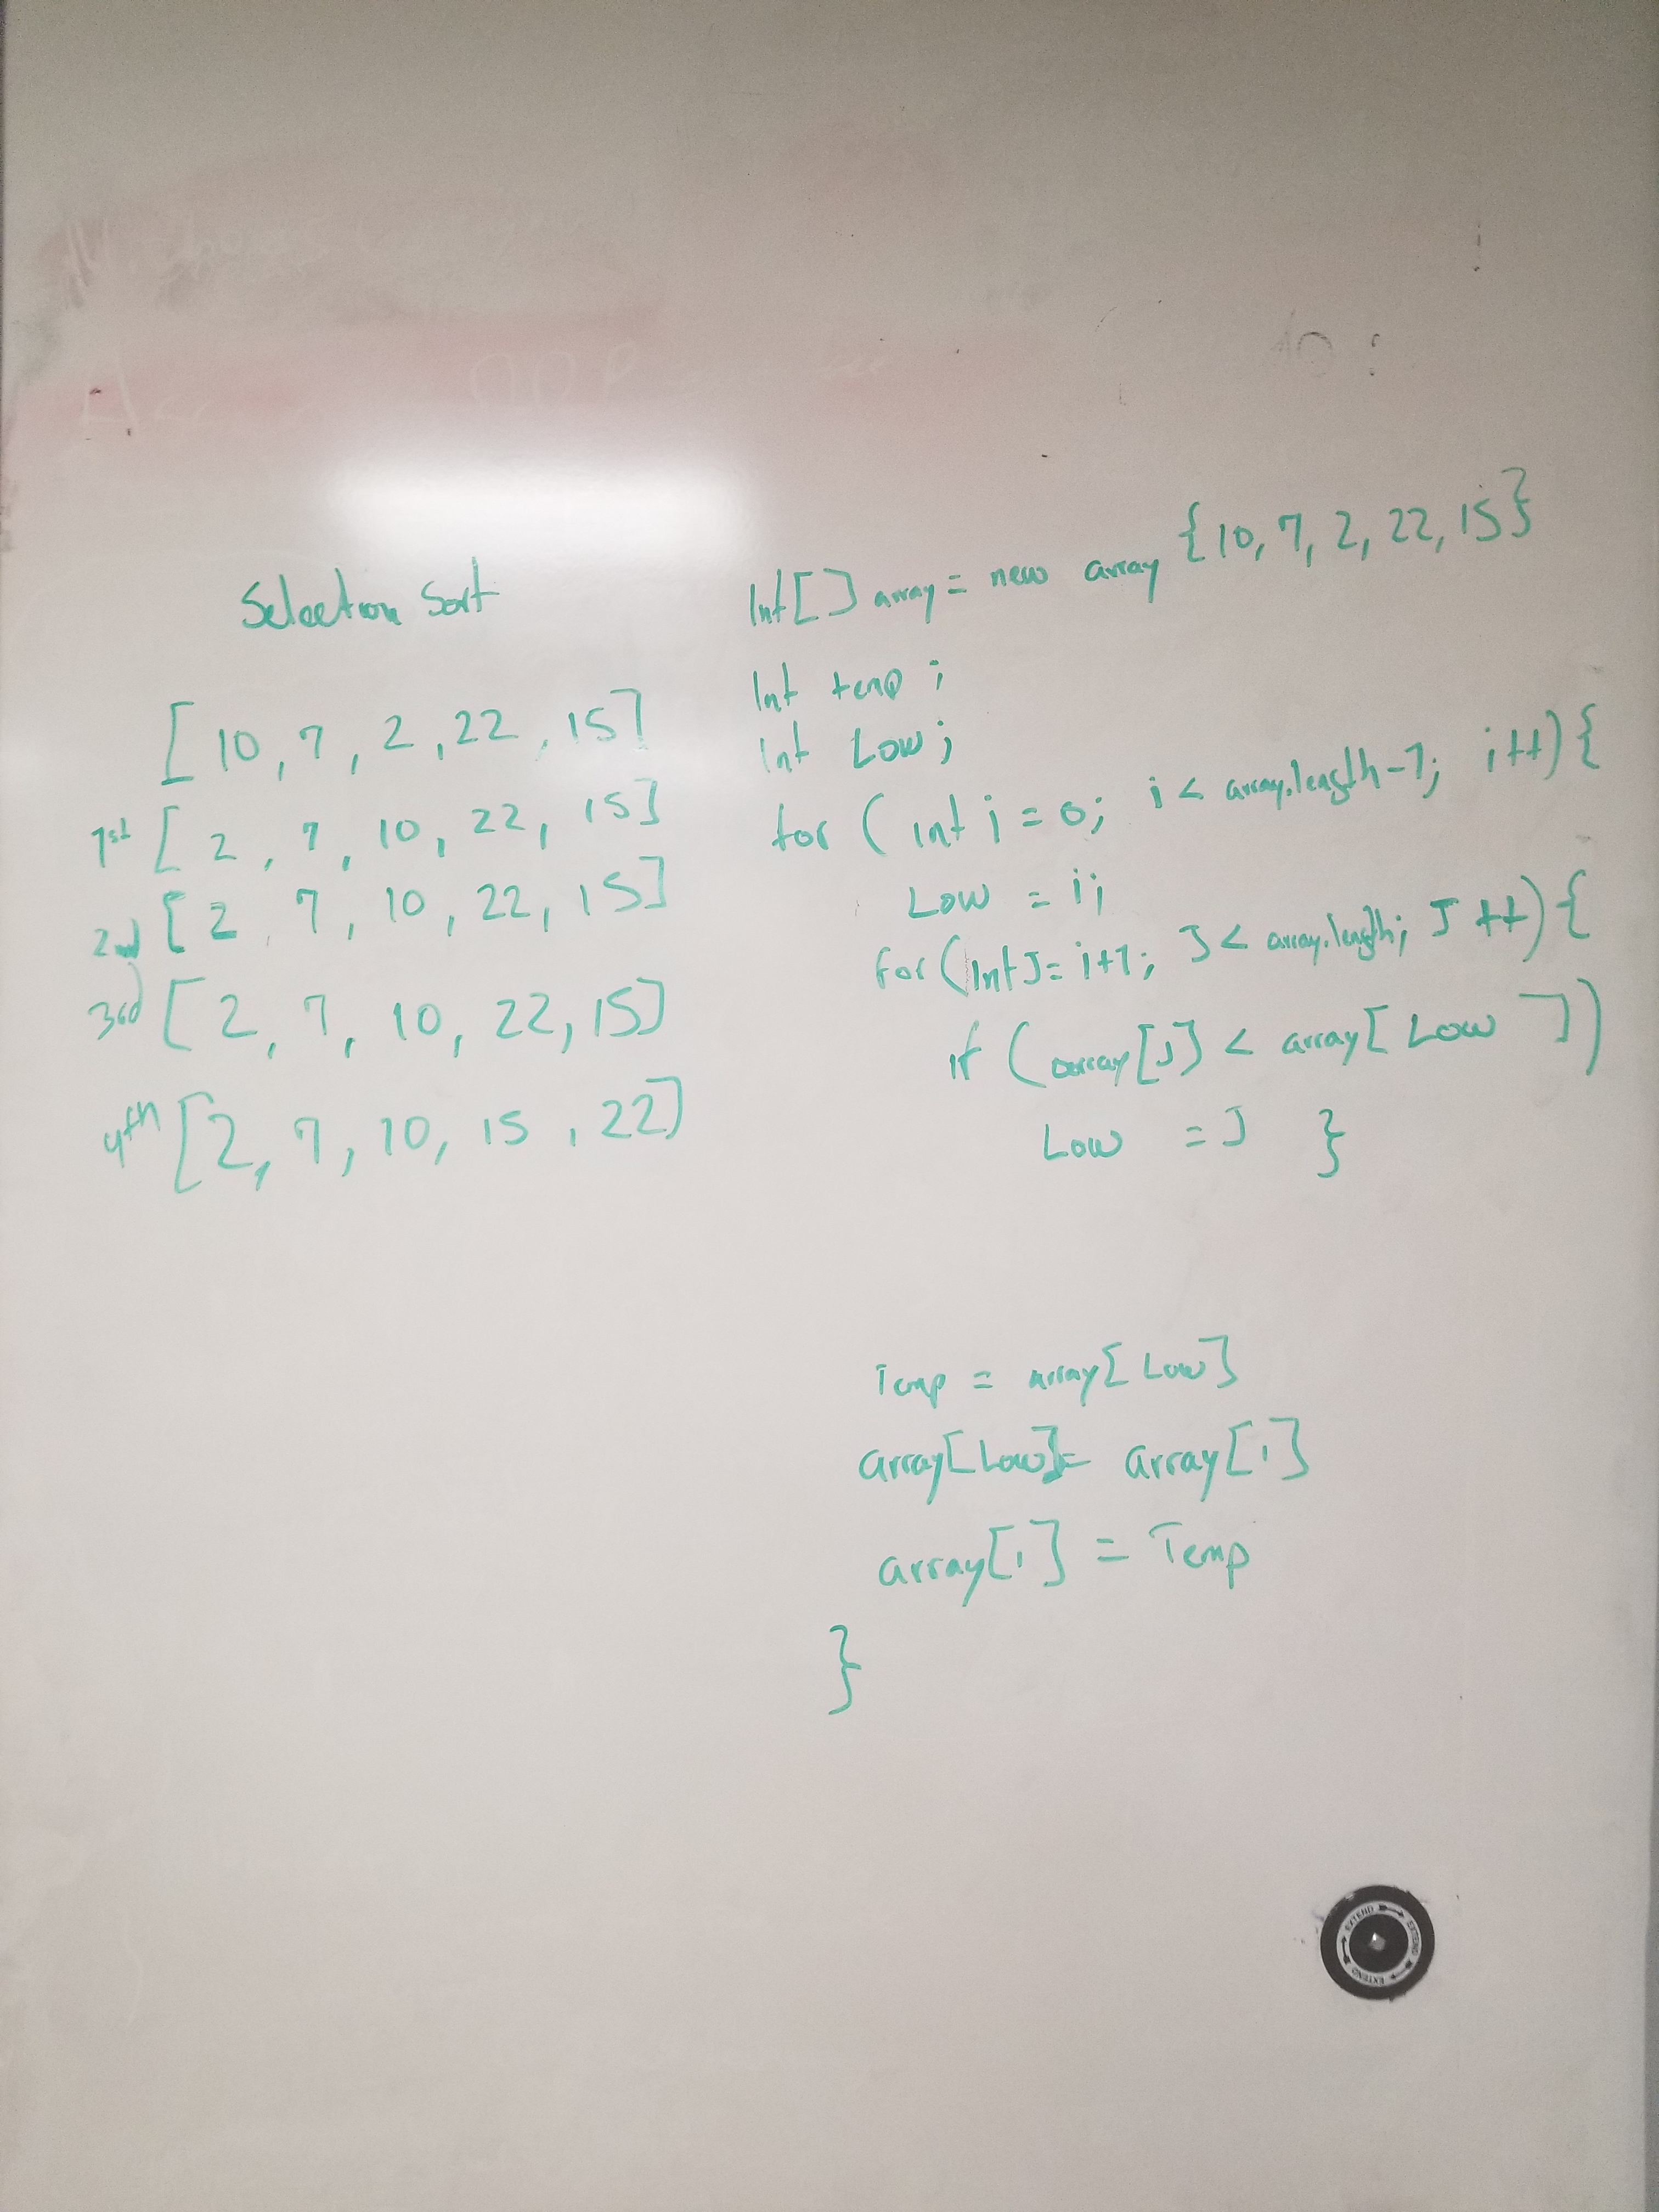 Selection Sort
[10, 7, 2, 22, 15]
1st [2, 7, 10, 22, 15]
2nd [2, 7, 10, 22, 15]
3rd [2, 7, 10, 22, 15]
4th [2, 7, 10, 15, 22]
Int[] array = new array {10, 7, 2, 22, 15}
Int temp;
Int Low;
for (int i = 0; i < array.length-1; i++){
Low = i;
for (Int J = i+1; J < array.length; J++){
if (array[J] < array[Low])
Low = J }
Temp = array[Low]
array[Low] = array[i]
array[i] = Temp
}
EXTEND EXTEND EXTEND